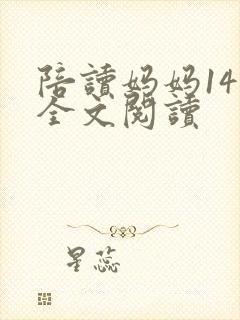 陪讀妈妈14
全文閱讀
星蕊